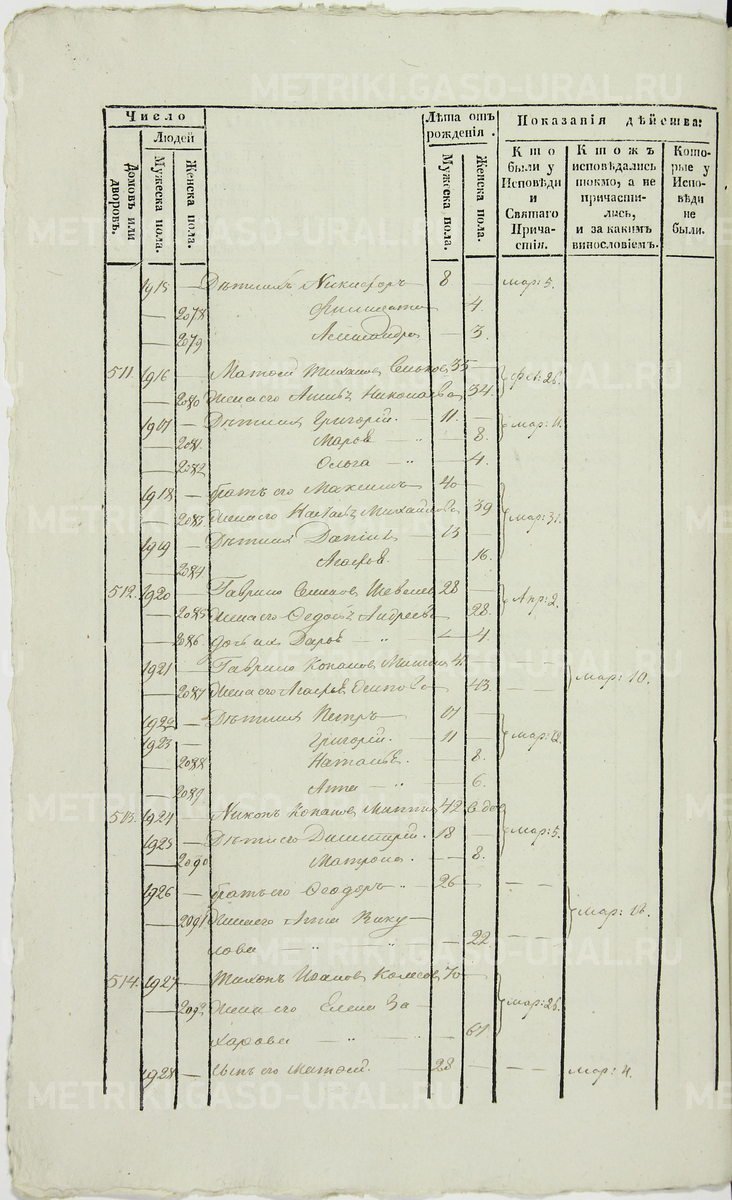 METRIKI.GASO-URAL.RU
Число
Людей
Домовъ или дворовъ.
Мужеска пола.
Женска пола.
Лѣта отъ рожденія.
Мужеска пола.
Женска пола.
Показанія дѣйства:
Кто были у Исповѣди и Святаго Причастія.
Ктожъ исповѣдались токмо, а не причастились, и за какимъ винословіемъ.
Которые у Исповѣди не были.
1915 Дѣти ихъ Никифоръ 8 мар: 5.
2078 4.
2079 Александра 3.
511. 1916 Матвей Тихановъ 35 фев: 26.
2080 Жена его Николаева 34.
1917 Дѣти ихъ Григорій. 11. мар: 11.
2081 Марѳа 8.
2082 Ольга 4.
1918 братъ его Максимъ 40 мар: 31.
2083 Жена его Михайлова 39
1919 Дѣти ихъ Даніилъ 13
2084 Агаѳья 16.
512. 1920 Гаврило Семеновъ 28 Апр: 2.
2085 Жена его Ѳедосья Андреева 28.
2086 дочь ихъ Дарья 4.
1921 Гаврило Конановъ мар: 10.
2087 Жена его Агаѳья 43.
1922 Дѣти ихъ Петръ 17 мар: 12.
1923 Григорій. 11
2088 Наталья. 8.
2089 Анна 6.
513. 1924 Никонъ Конановъ 42 вдо мар: 5.
1925 Дѣти его Димитрій. 18
2090 Матрона. 8.
1926 братъ его Ѳеодоръ 26
2091 Жена его Анна Ваку мар: 12.
лова 22
514. 1927 Тихонъ Ивановъ Колясов 70 мар: 26.
2092 Жена его Елена За
харова 67
1928 сынъ его Матвей. 28 мар: 4.